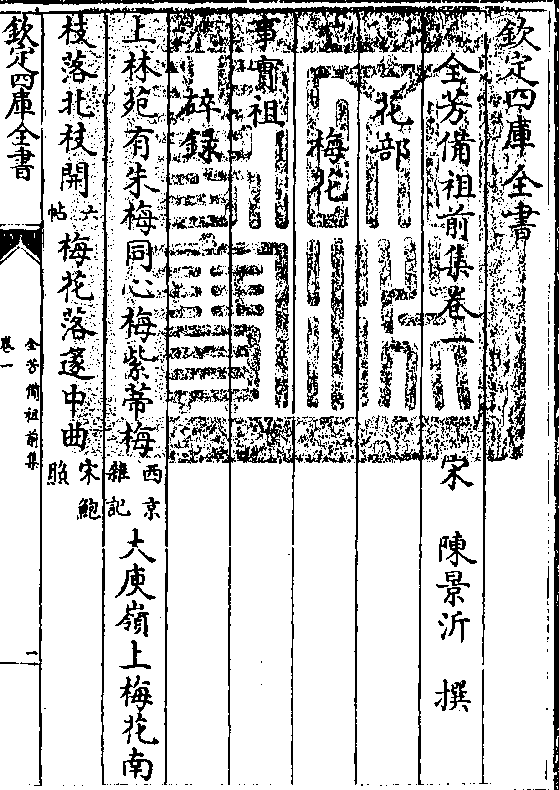 欽定四庫全書
全芳備祖前集卷一　宋　陳景沂　撰
花部
梅花
事實祖
碎錄
上林苑有朱梅同心梅紫蒂梅西京雜記大庾嶺上梅花南
枝落北枝開六帖梅花落邃中曲宋鮑照
欽定四庫全書
全芳備祖前集
卷一
一